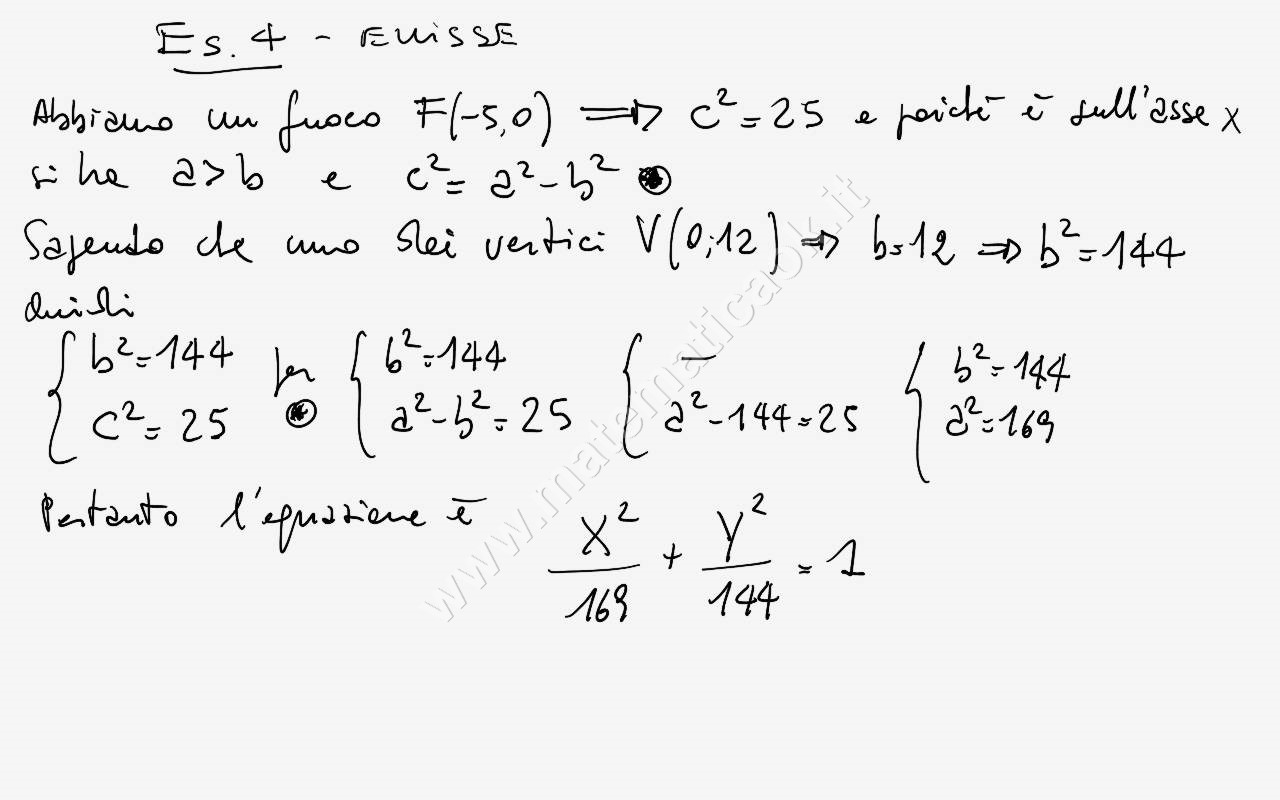 Es. 4 - ELLISSE
Abbiamo un fuoco F(-5,0) ⟹ c² = 25 e poiché è sull'asse x
si ha a > b e c² = a² - b² ⊛
Sapendo che uno dei vertici V(0;12) ⟹ b = 12 ⟹ b² = 144
Quindi
{ b² = 144 per { b² = 144 { — { b² = 144
c² = 25 ⊛ a² - b² = 25 a² - 144 = 25 a² = 169
Pertanto l'equazione è x²/169 + y²/144 = 1
www.matematicaok.it